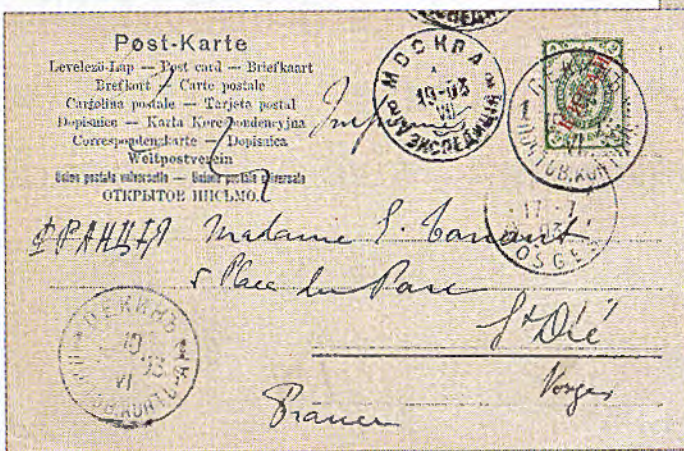 Post-Karte
Levelező-Lap — Post card — Briefkaart
Brefkort — Carte postale
Cartolina postale — Tarjeta postal
Dopisnice — Karta Korespondencyjna
Correspondenzkarte — Dopisnica
Weltpostverein
Union postale universelle — Unione postale universale
ОТКРЫТОЕ ПИСЬМО.
МОСКВА
19-03
VII
ЭКСПЕДИЦ
ПЕКИНЪ
ПОЧТОВ. КОНТОРА
17-7
03
VOSGES
ФРАНЦІЯ Madame
5 Place du Parc
St Dié
Vosges
France
ПЕКИНЪ
19
03
VI
ПОЧТОВ. КОНТОРА